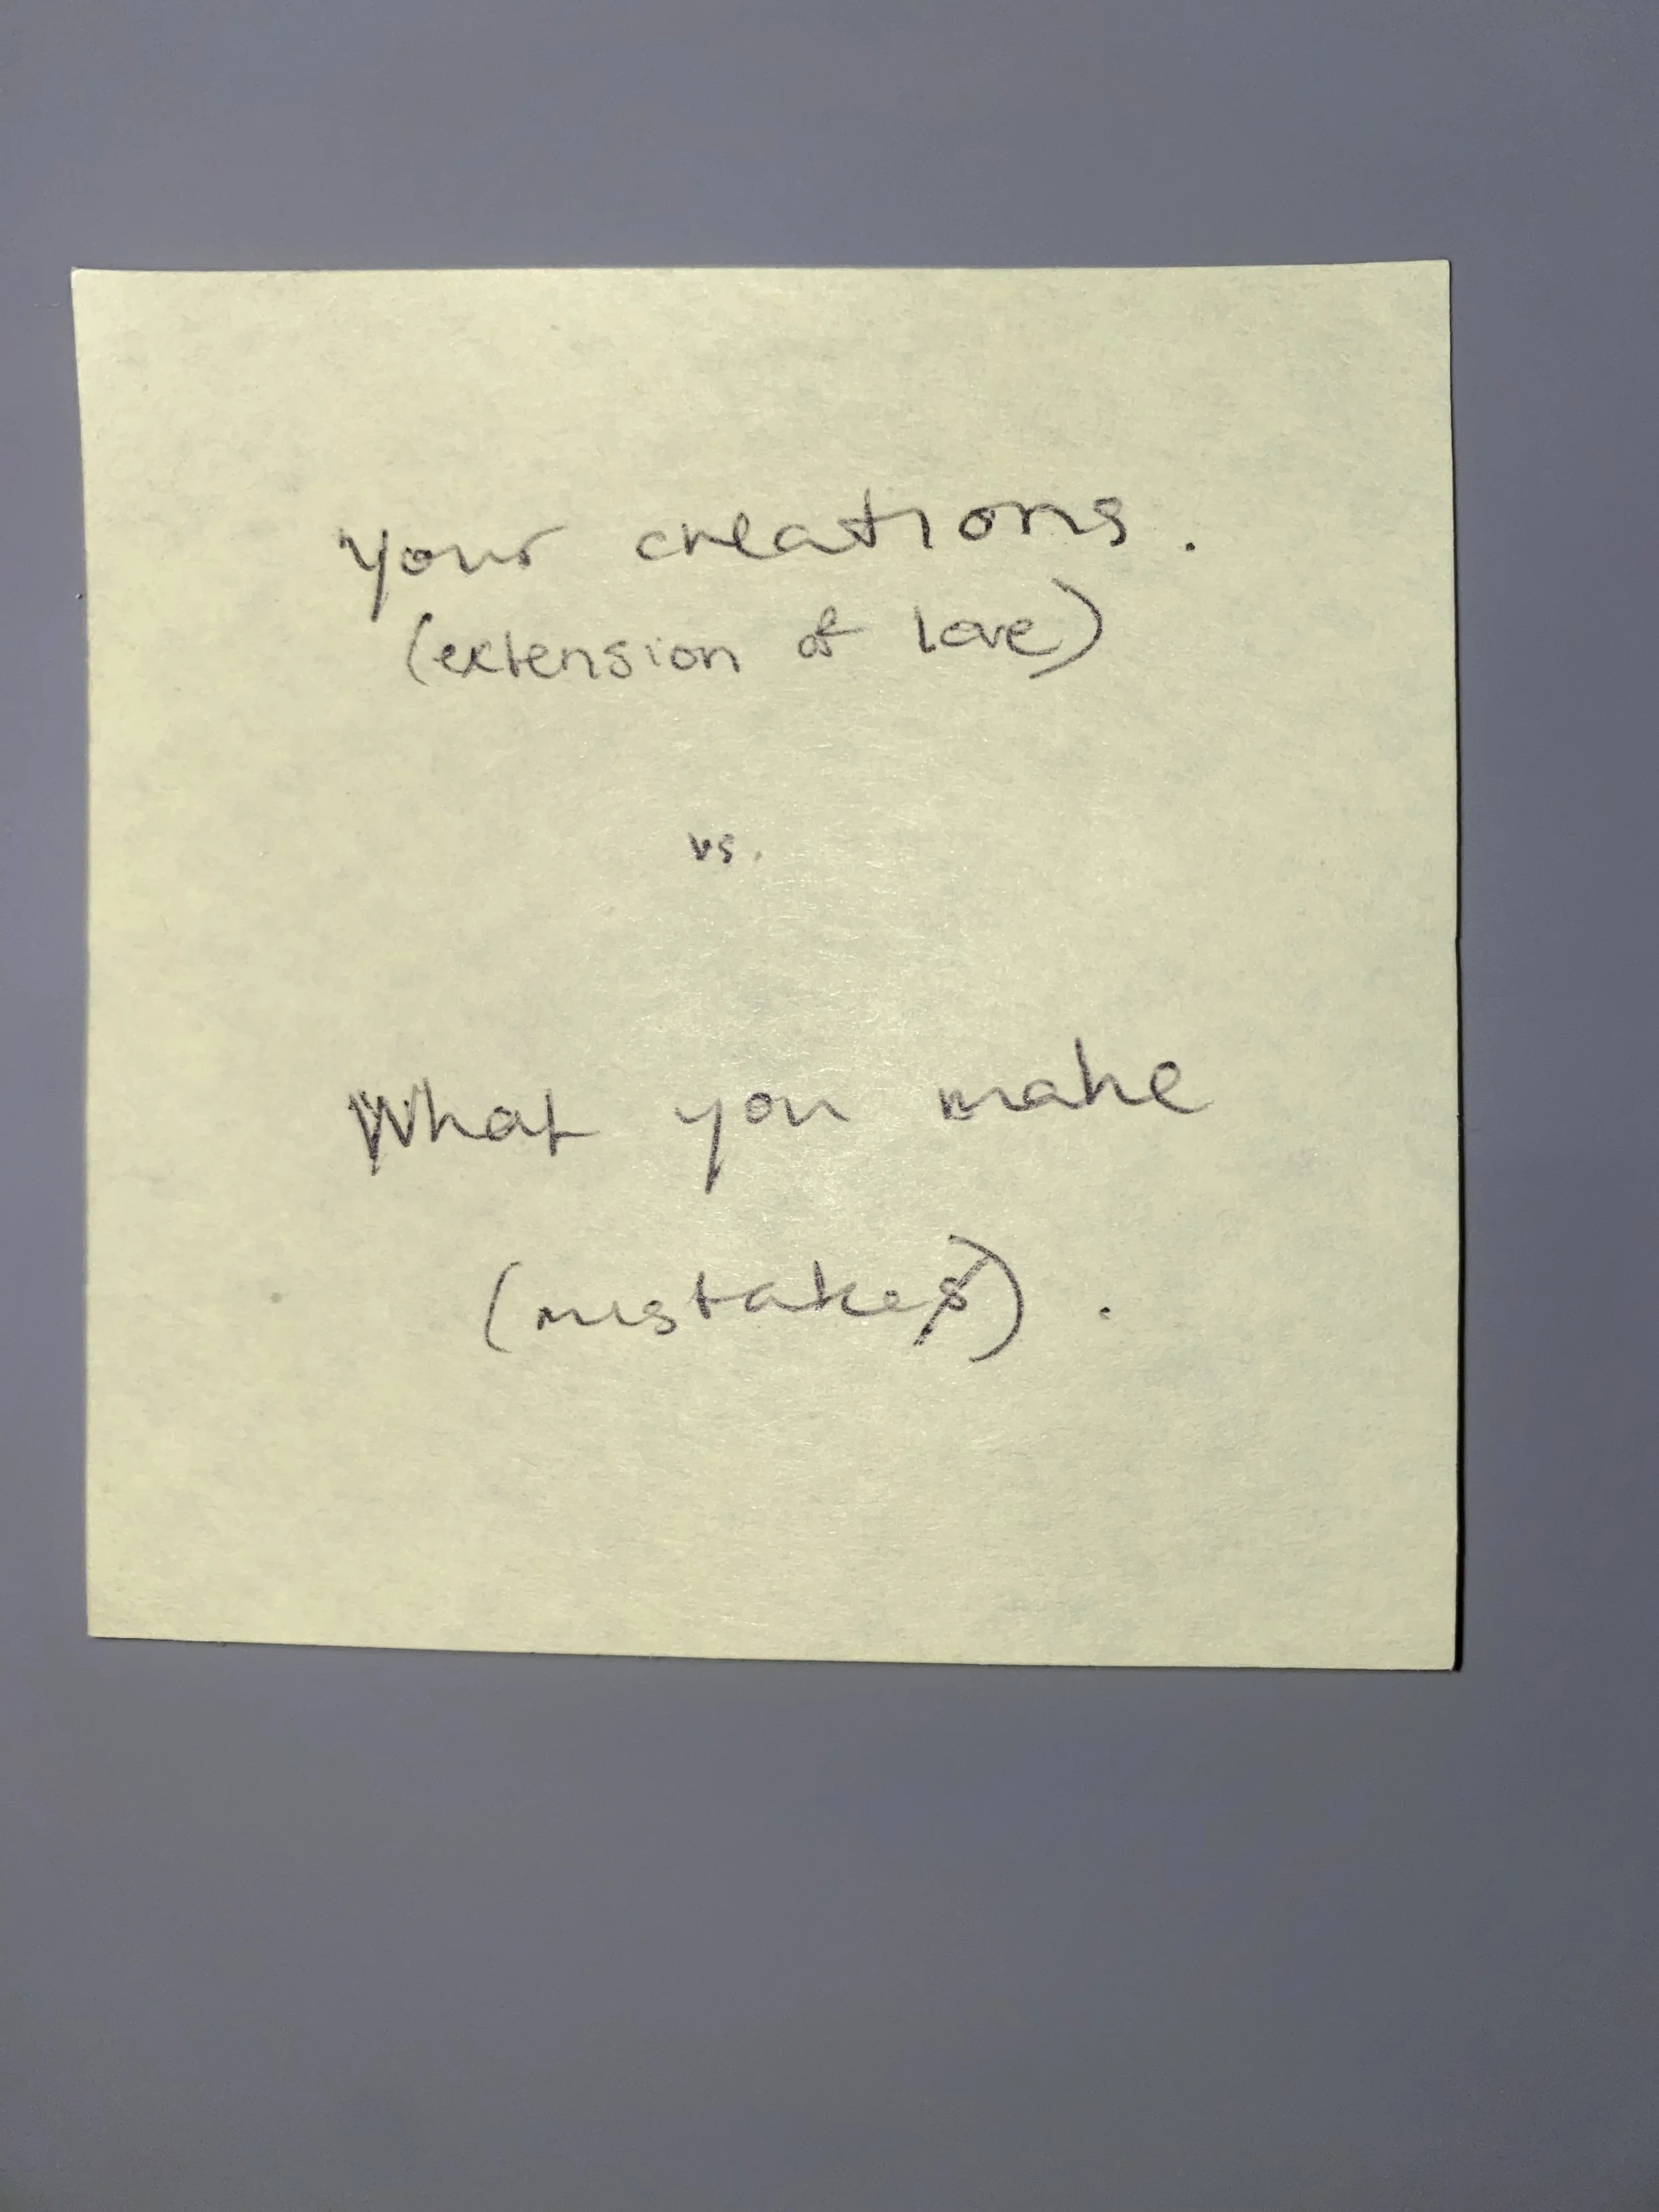 Your creations.
(extension of love)
vs.
What you make
(mistakes).